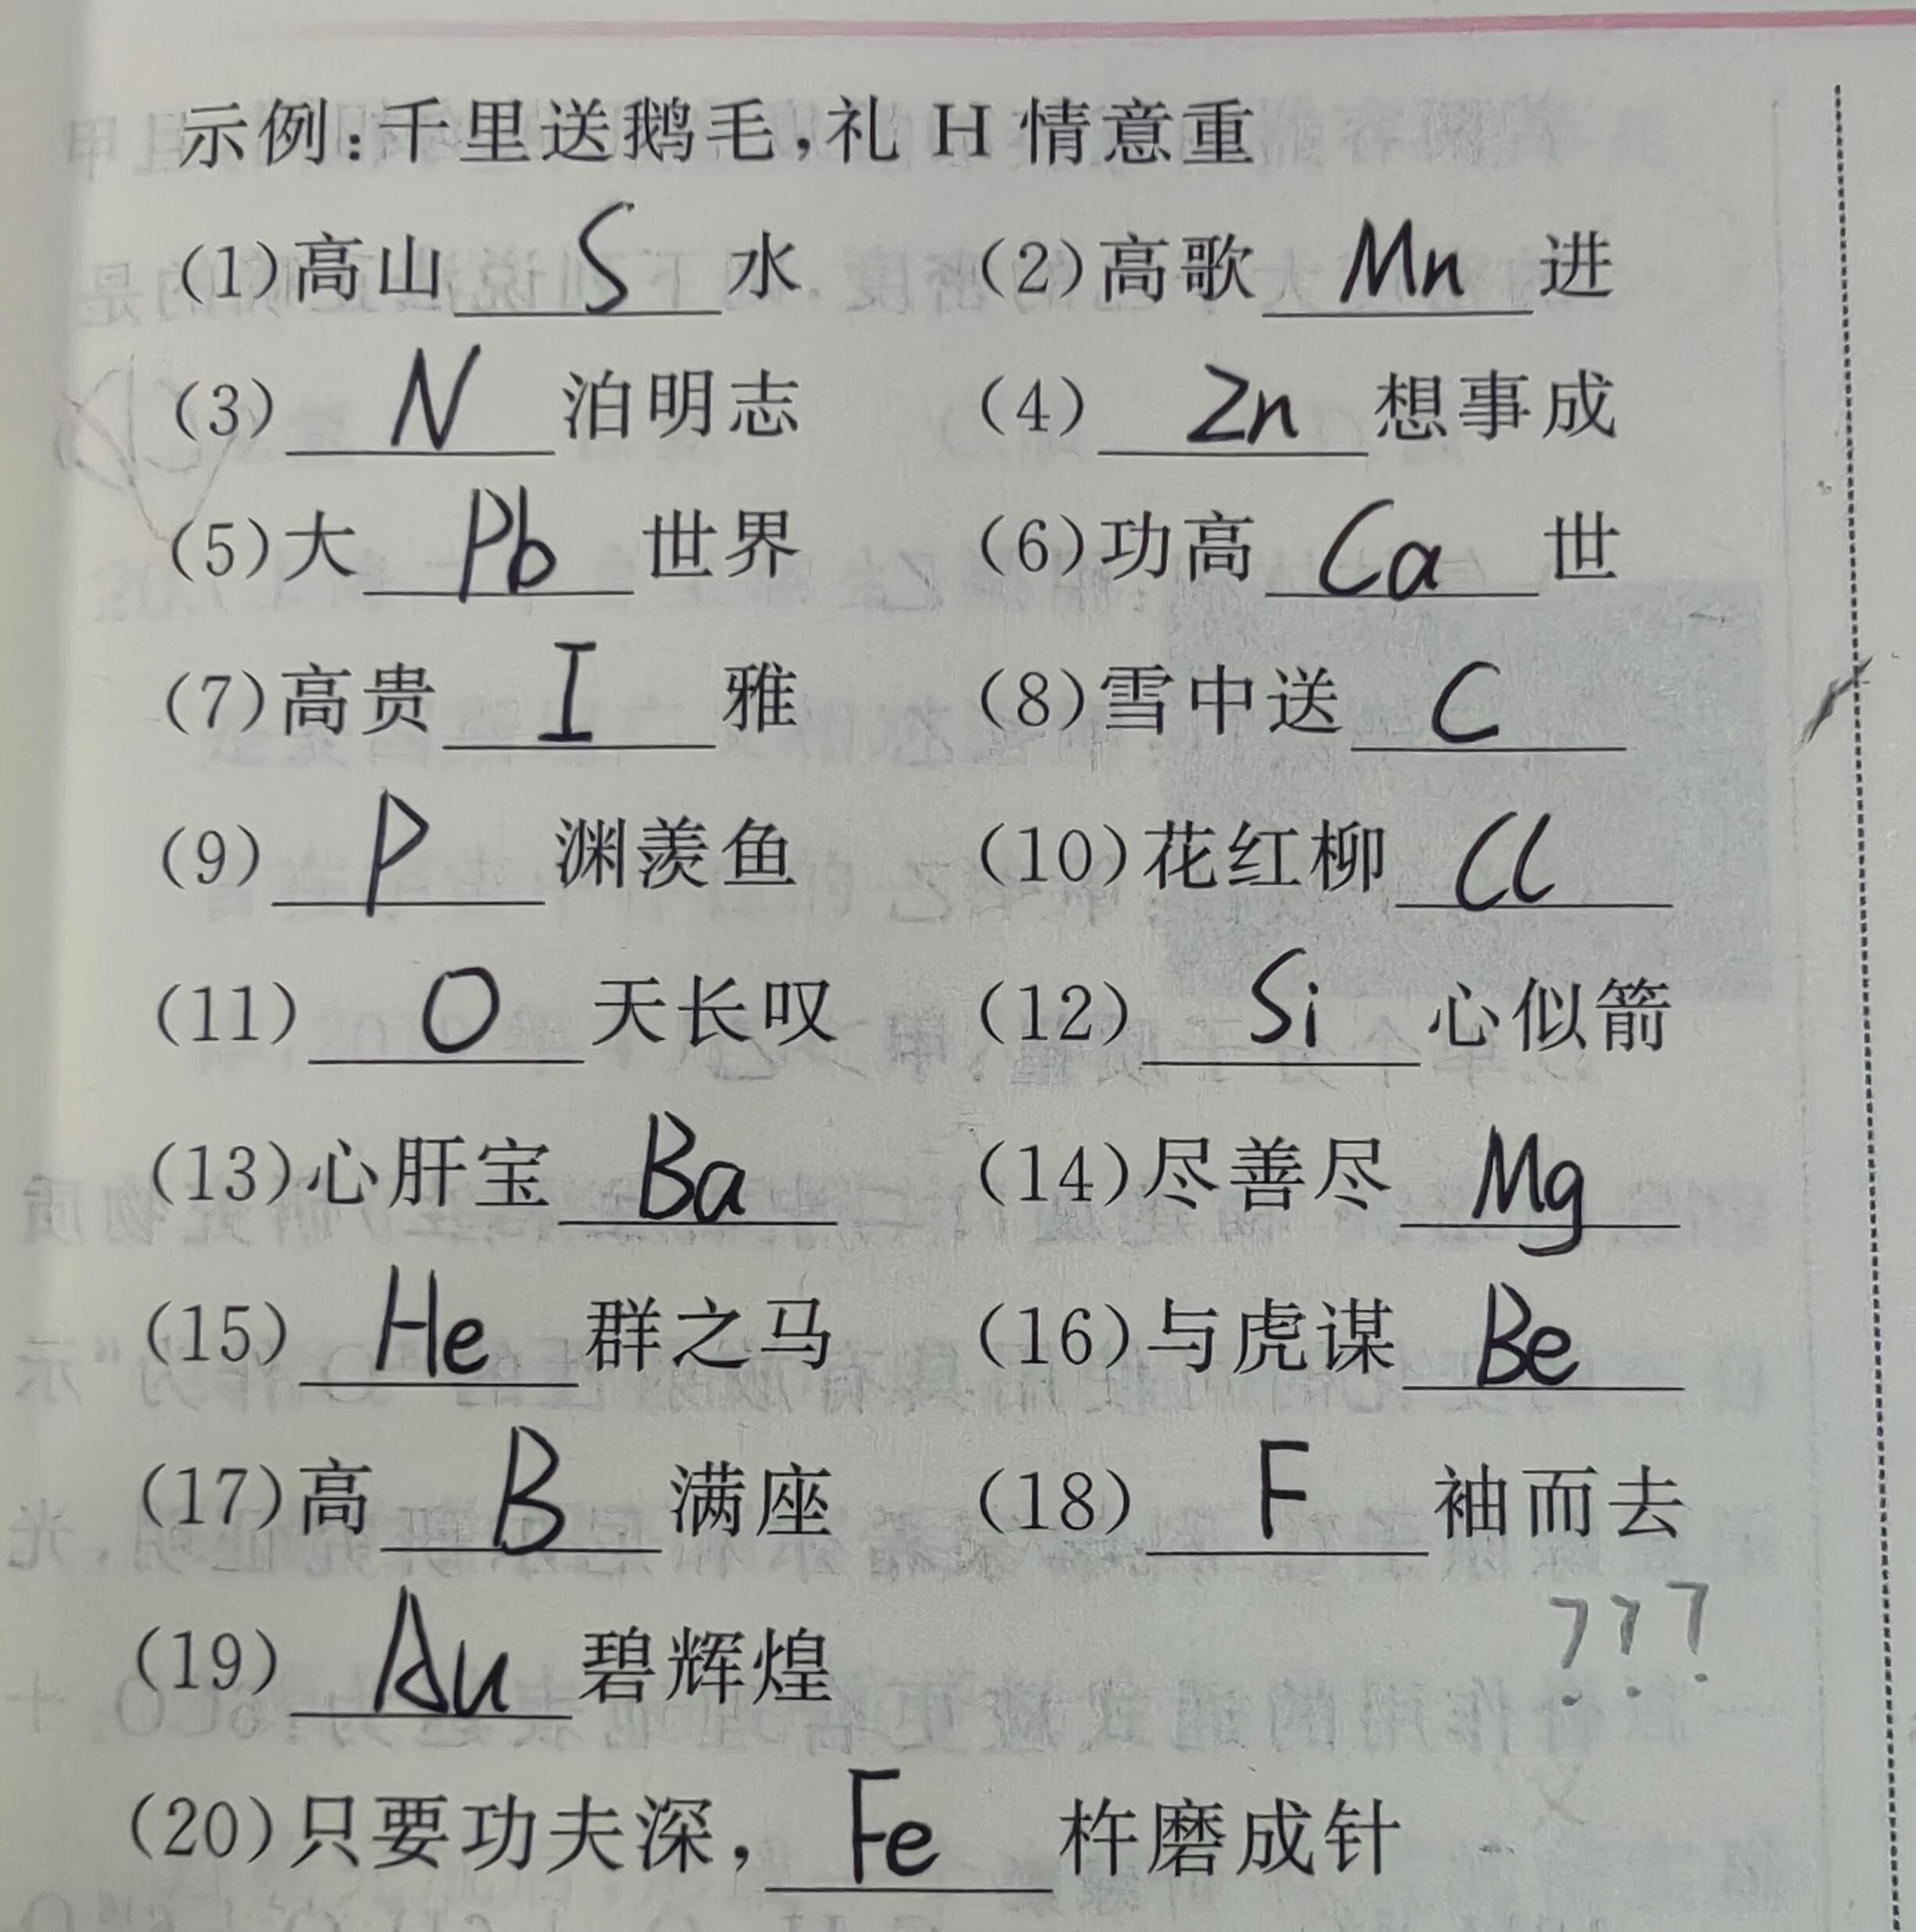 示例:千里送鹅毛,礼 H 情意重
(1)高山 S 水 (2)高歌 Mn 进
(3) N 泊明志 (4) Zn 想事成
(5)大 Pb 世界 (6)功高 Ca 世
(7)高贵 I 雅 (8)雪中送 C
(9) P 渊羡鱼 (10)花红柳 Cl
(11) O 天长叹 (12) Si 心似箭
(13)心肝宝 Ba (14)尽善尽 Mg
(15) He 群之马 (16)与虎谋 Be
(17)高 B 满座 (18) F 袖而去
(19) Au 碧辉煌 ???
(20)只要功夫深, Fe 杵磨成针